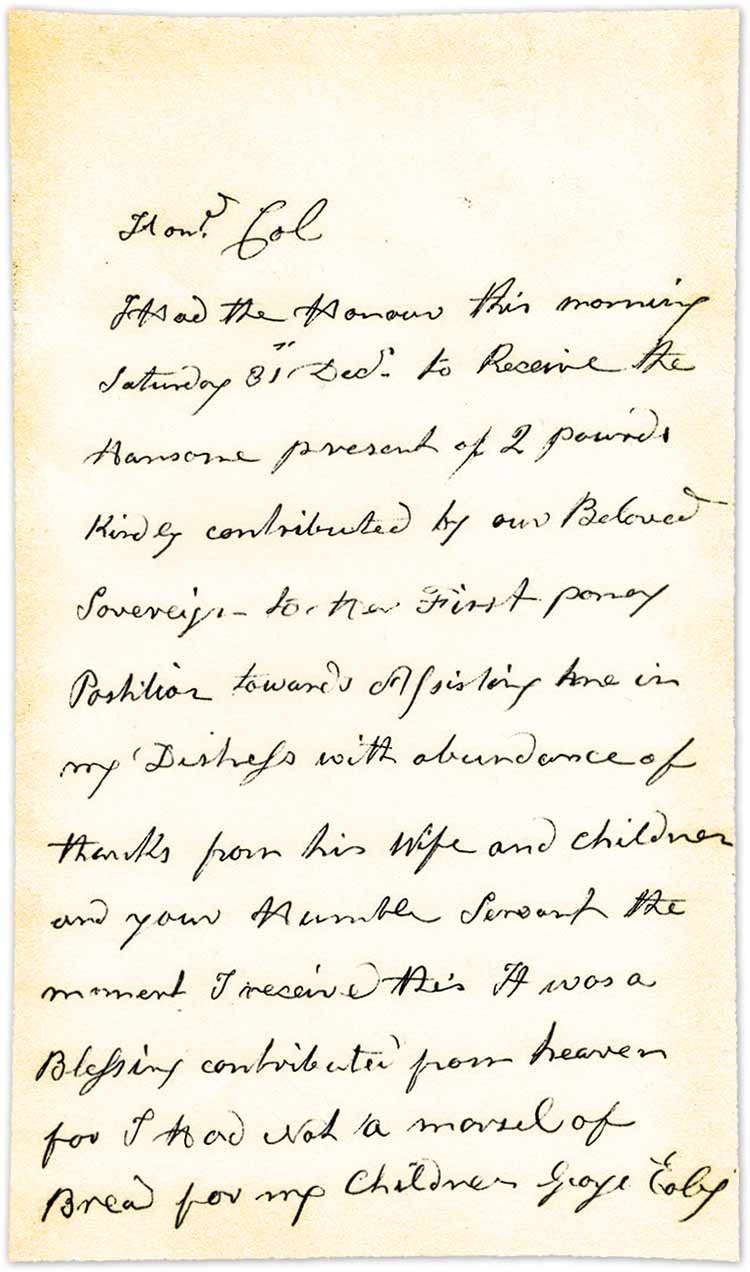 Hond. Col
I Had the Honour this morning
Saturday 31st Decr. to Receive the
Hansome present of 2 pounds
Kindly contributed by our Beloved
Sovereign to Her First poney
Postilion towards Assisting me in
my Distress with abundance of
thanks from his Wife and children
and your Humble Servant the
moment I received this It was a
Blessing contributed from heaven
for I Had Not a morsel of
Bread for my Children George